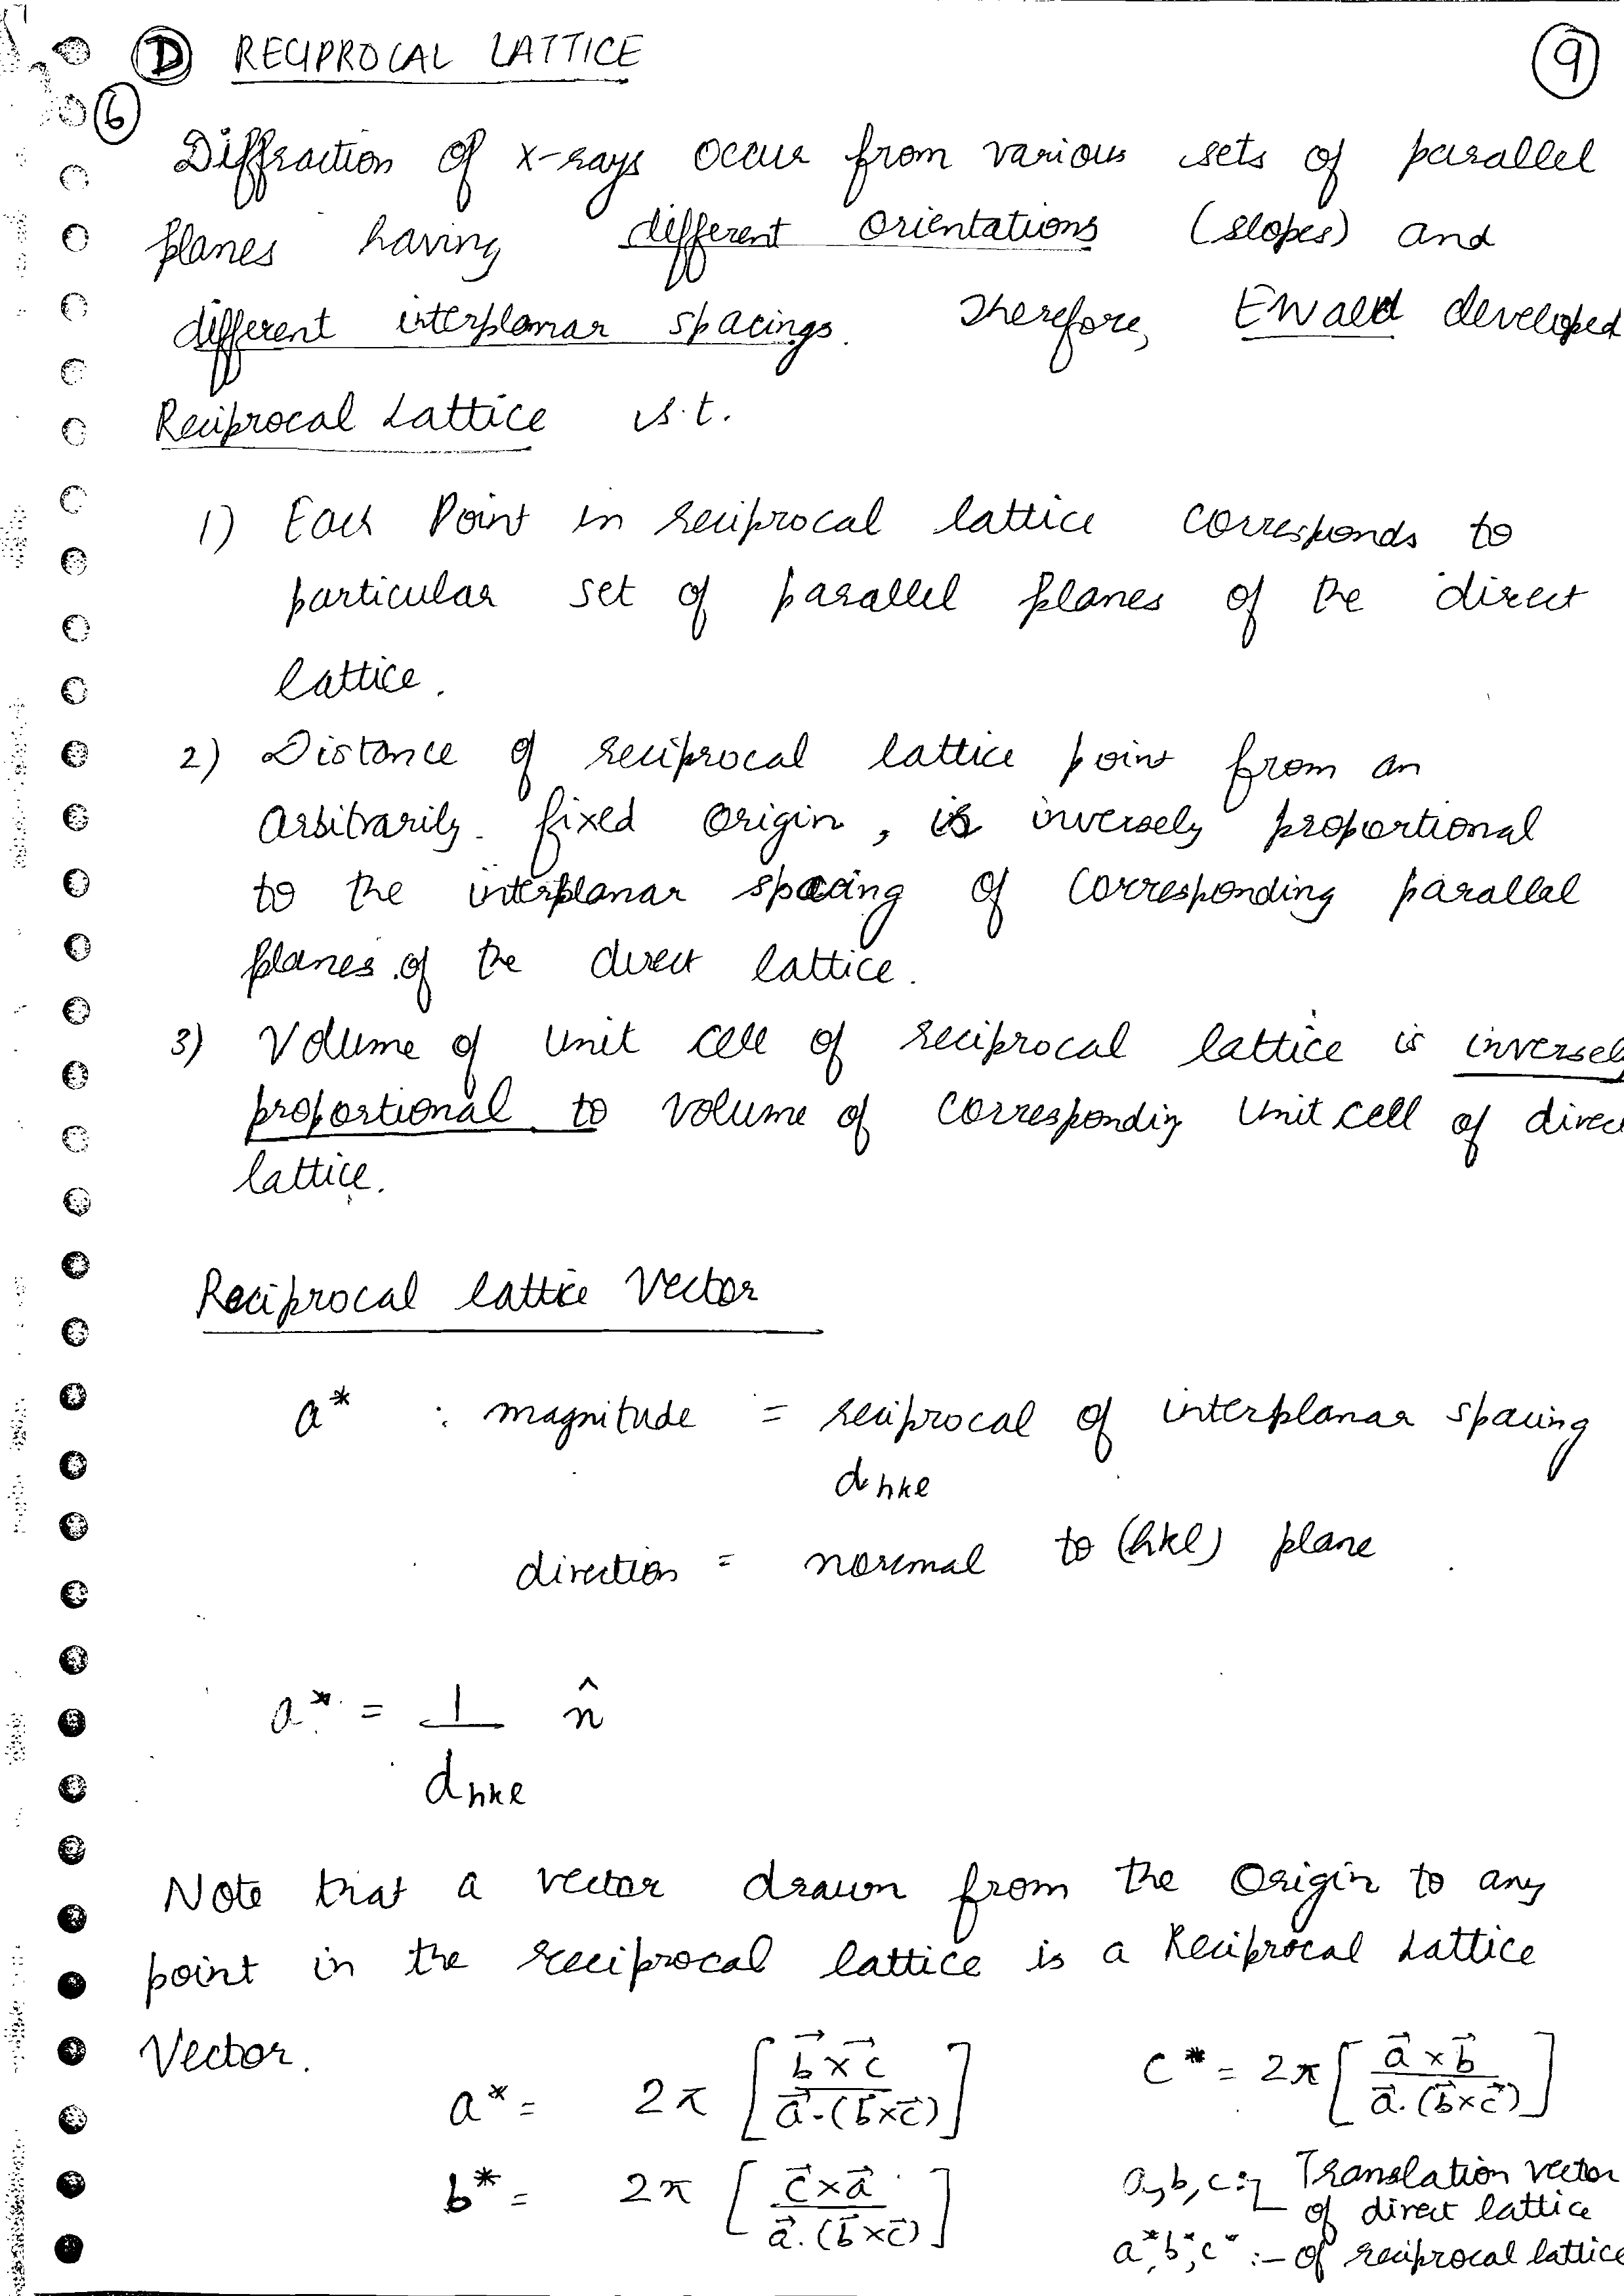 D RECIPROCAL LATTICE
9
6
Diffraction of x-rays occur from various sets of parallel
planes having different orientations (slopes) and
different interplanar spacings. Therefore, EWald developed
Reciprocal Lattice s.t.
1) Each Point in reciprocal lattice corresponds to
particular set of parallel planes of the direct
lattice.
2) Distance of reciprocal lattice point from an
arbitrarily fixed origin, is inversely proportional
to the interplanar spacing of corresponding parallel
planes of the direct lattice.
3) Volume of unit cell of reciprocal lattice is inversely
proportional to volume of corresponding unit cell of direc
lattice.
Reciprocal lattice Vector
a* : magnitude = reciprocal of interplanar spacing
d_hkl
direction = normal to (hkl) plane
a* = 1/d_hkl n̂
Note that a vector drawn from the origin to any
point in the reciprocal lattice is a Reciprocal Lattice
Vector.
a* = 2π [ b⃗ × c⃗ / a⃗ . (b⃗ × c⃗) ] c* = 2π [ a⃗ × b⃗ / a⃗ . (b⃗ × c⃗) ]
b* = 2π [ c⃗ × a⃗ / a⃗ . (b⃗ × c⃗) ]
a, b, c :- Translation vector
of direct lattice
a*, b*, c* :- of reciprocal lattice